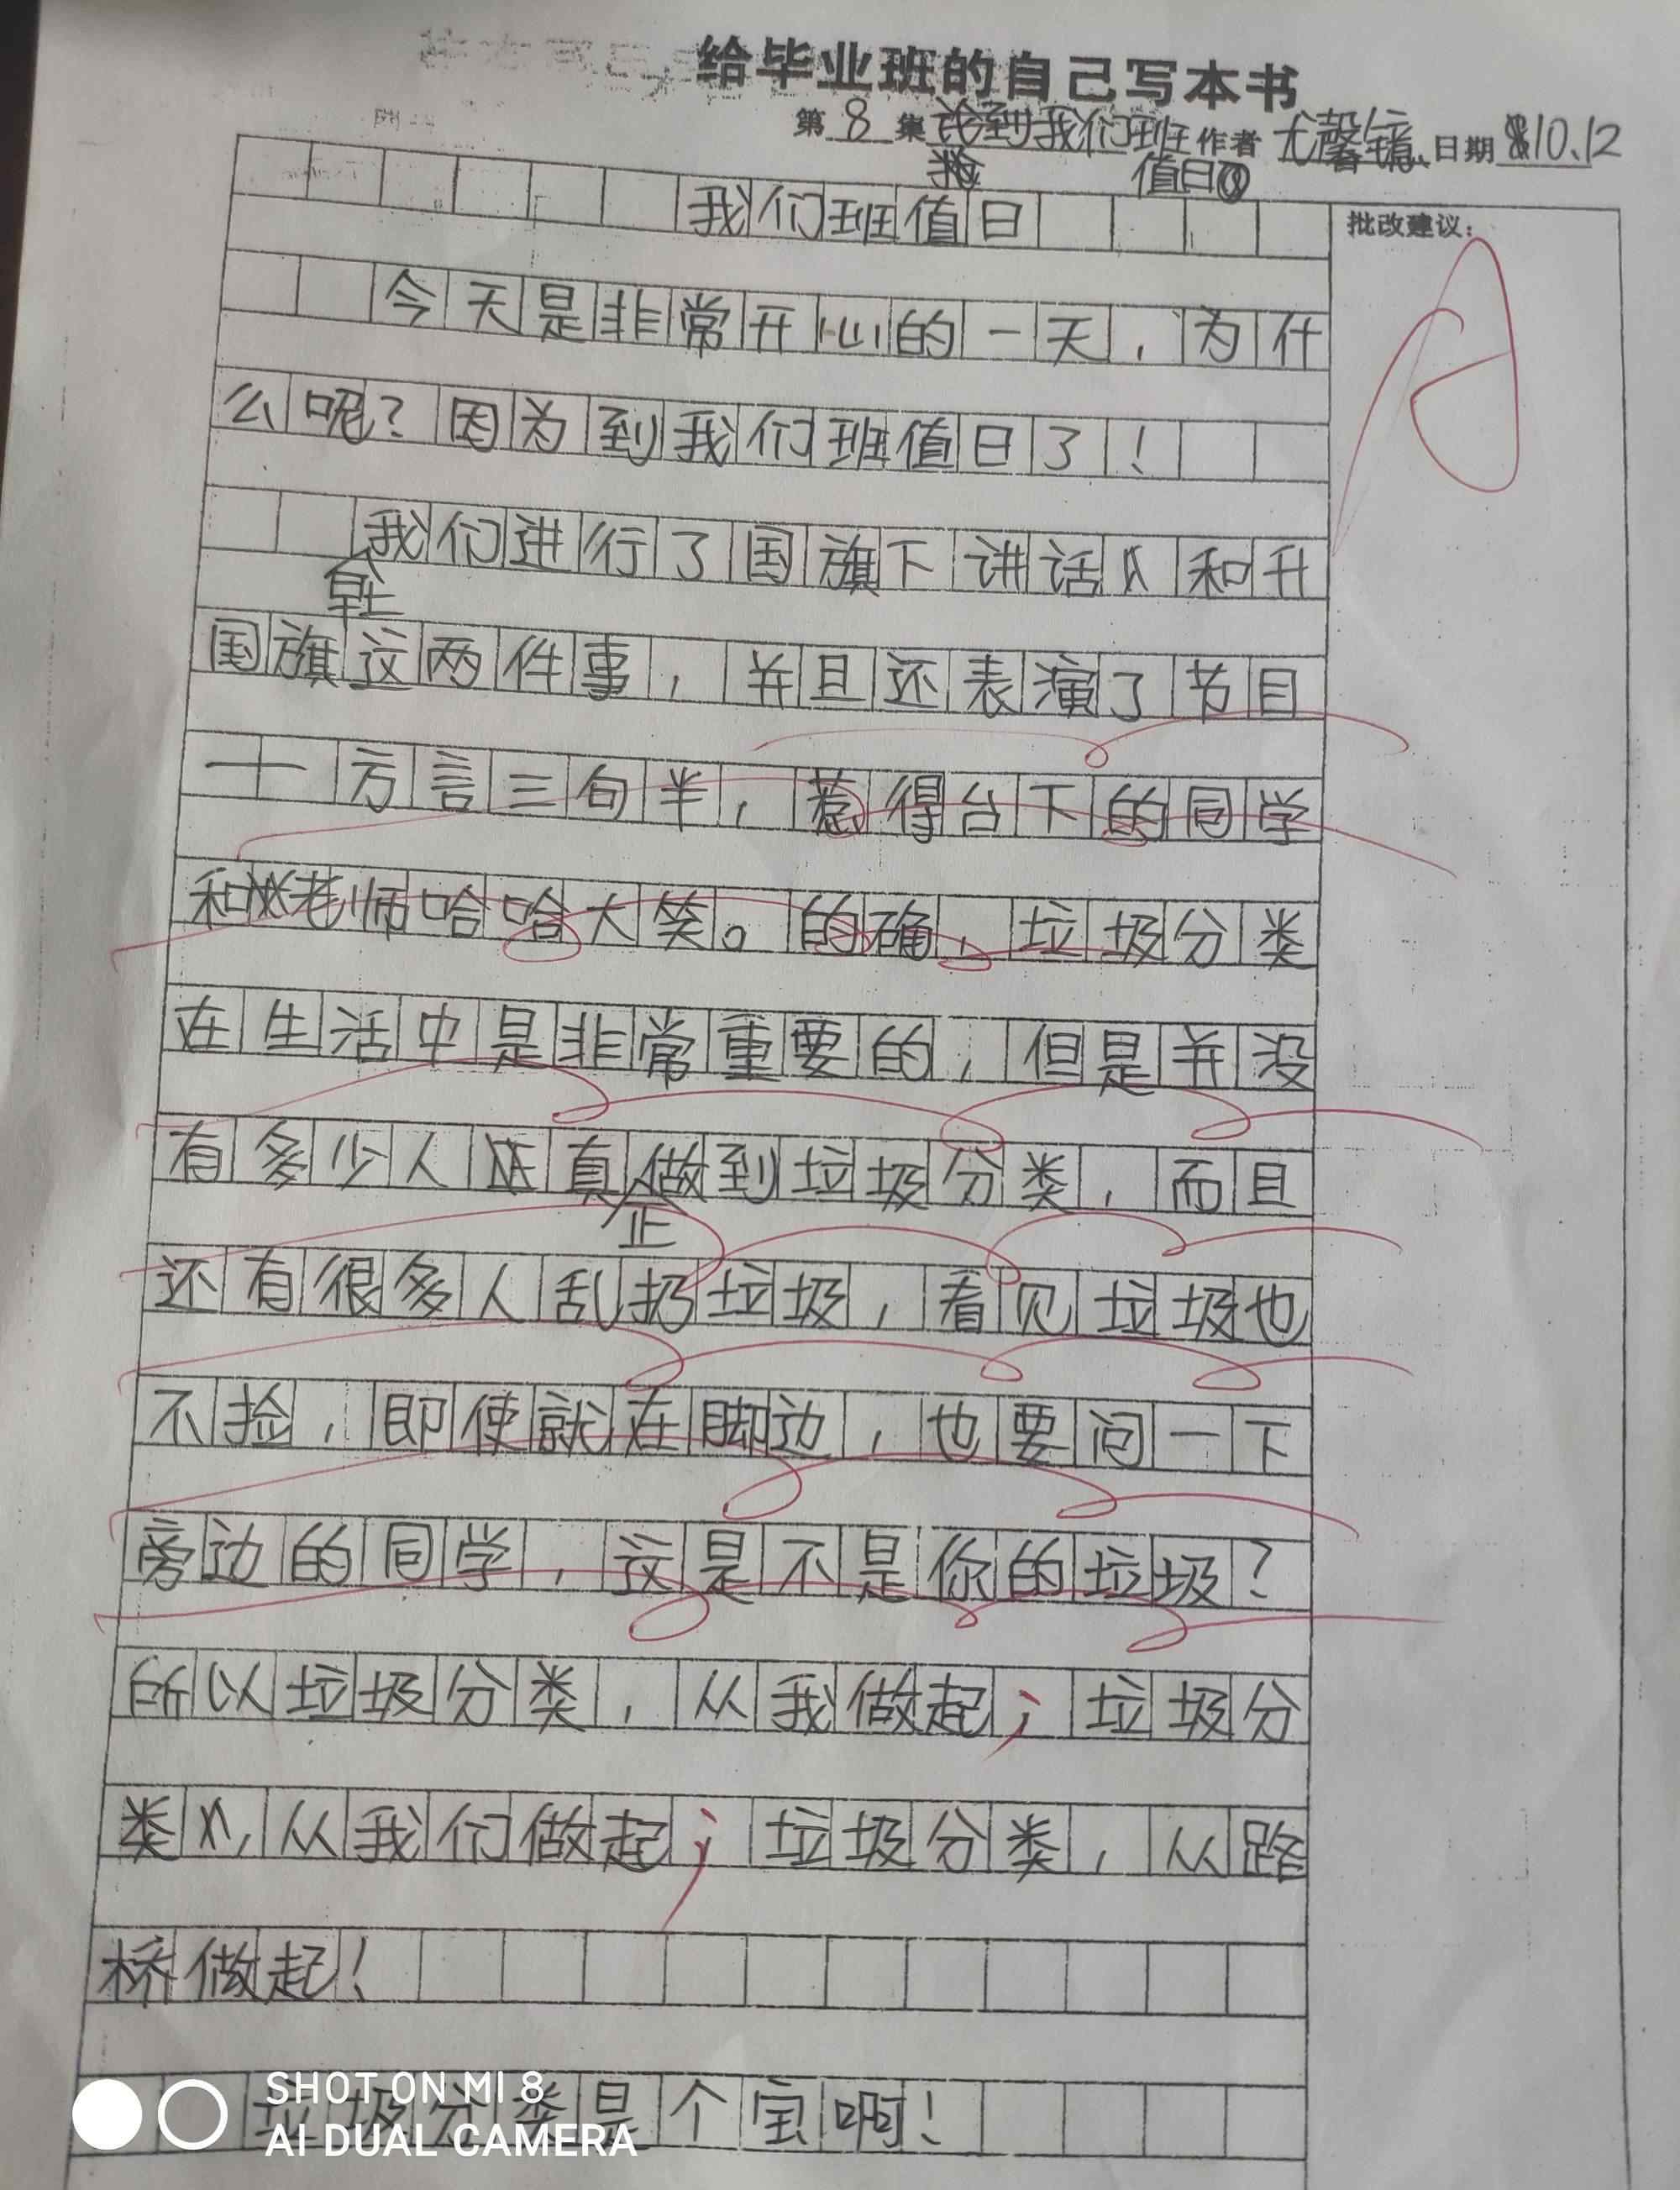 给毕业班的自己写本书
第 8 集 轮到我们班 作者 尤馨镱 日期 10.12
值日
我们班值日
批改建议:
今天是非常开心的一天，为什
么呢？因为到我们班值日了！
我们进行了国旗下讲话和升
国旗这两件事，并且还表演了节目
——方言三句半，惹得台下的同学
和老师哈哈大笑。的确，垃圾分类
在生活中是非常重要的，但是并没
有多少人真正做到垃圾分类，而且
还有很多人乱扔垃圾，看见垃圾也
不捡，即使就在脚边，也要问一下
旁边的同学，这是不是你的垃圾？
所以垃圾分类，从我做起；垃圾分
类，从我们做起；垃圾分类，从路
桥做起！
垃圾分类是个宝啊！
SHOT ON MI 8
AI DUAL CAMERA